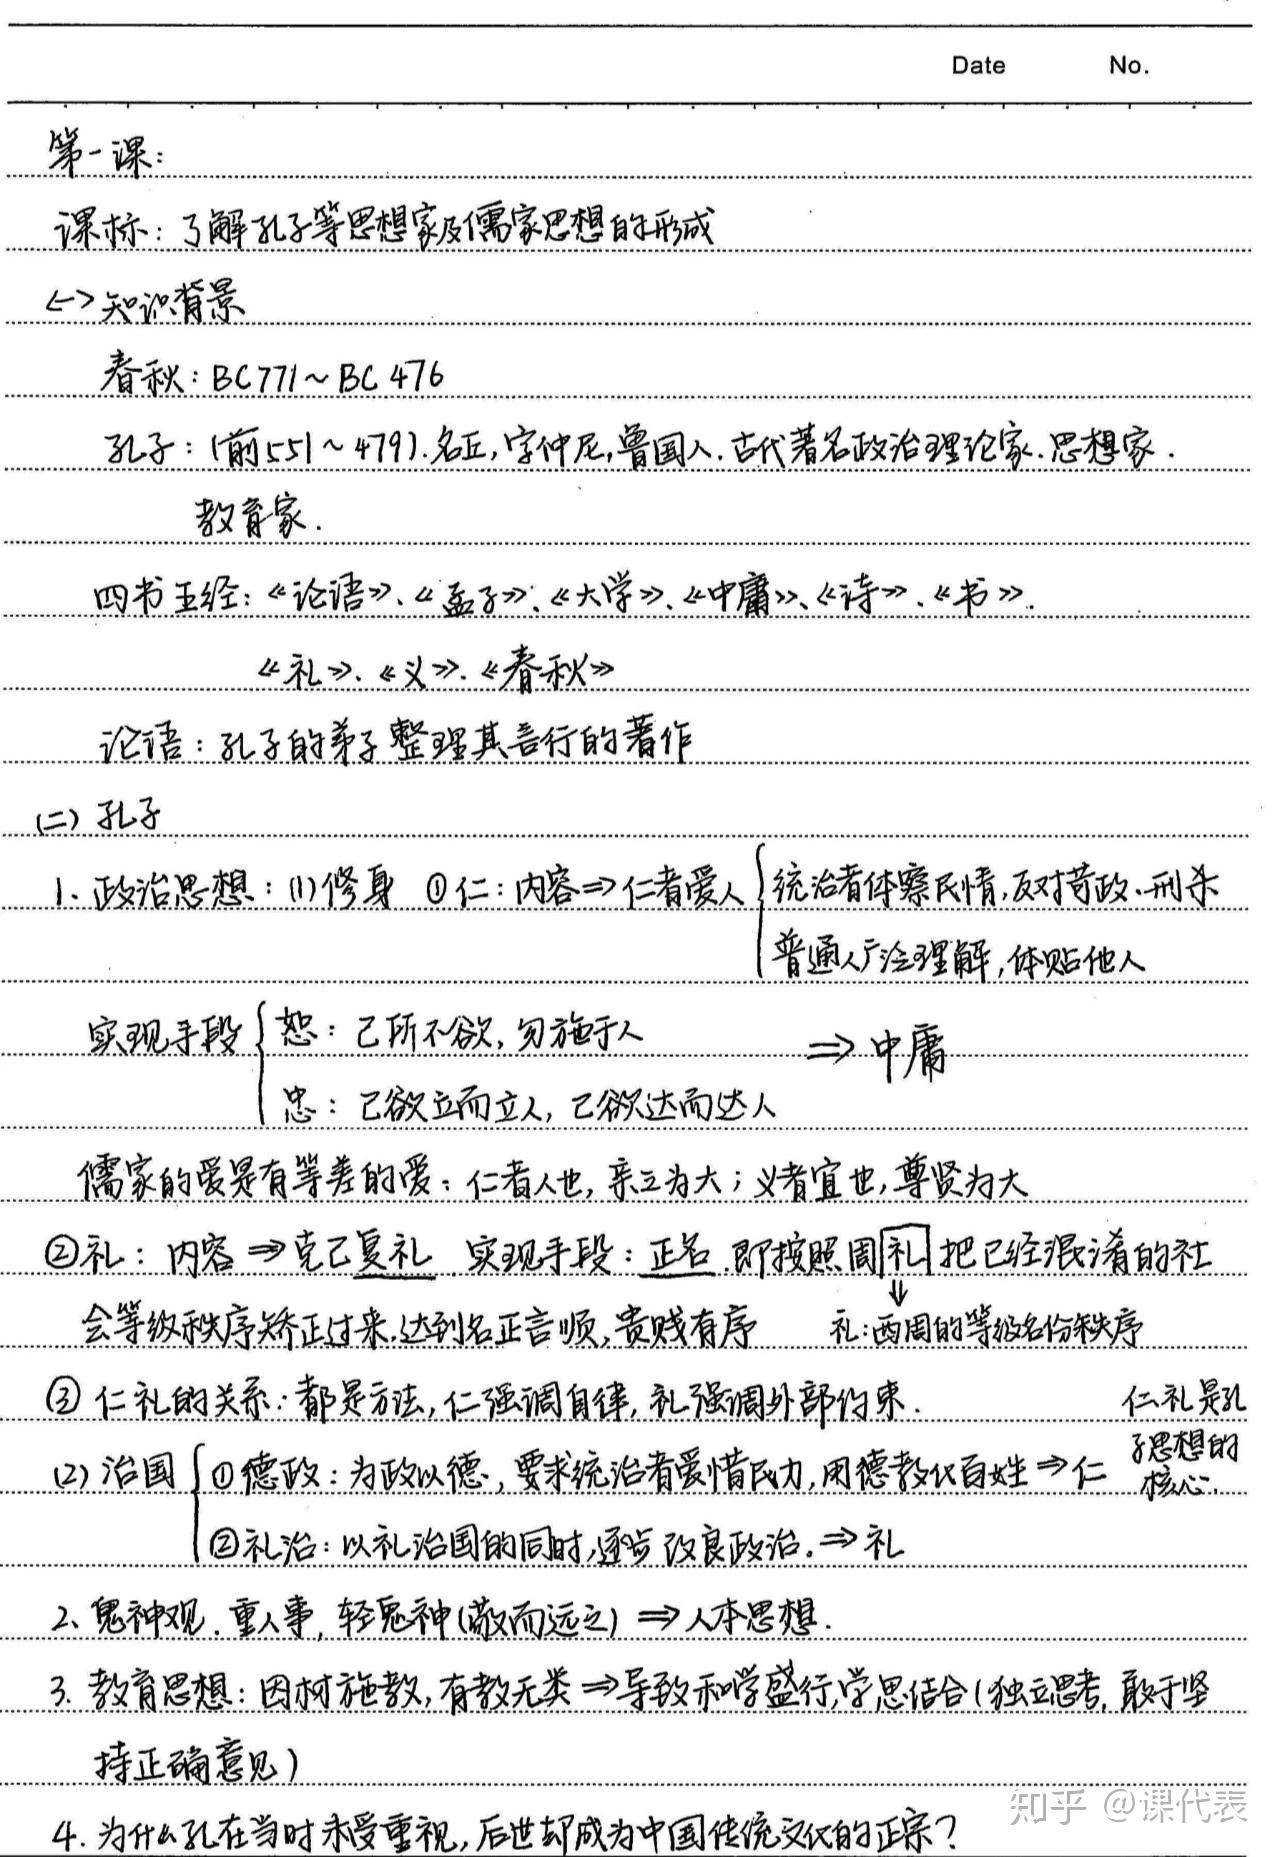 Date No.
第一课:
课标:了解孔子等思想家及儒家思想的形成
<一>知识背景
春秋:BC771~BC476
孔子:(前551~479).名丘,字仲尼,鲁国人.古代著名政治理论家.思想家.
教育家.
四书五经:《论语》、《孟子》、《大学》、《中庸》、《诗》、《书》.
《礼》、《义》、《春秋》
论语:孔子的弟子整理其言行的著作
(二)孔子
1.政治思想:(1)修身 ①仁:内容⇒仁者爱人 { 统治者体察民情,反对苛政、刑杀
普通人广泛理解,体贴他人
实现手段 { 恕:己所不欲,勿施于人 ⇒中庸
忠:己欲立而立人,己欲达而达人
儒家的爱是有等差的爱:仁者人也,亲之为大;义者宜也,尊贤为大
②礼:内容⇒克己复礼.实现手段:正名.即按照周礼把已经混淆的社
会等级秩序矫正过来,达到名正言顺,贵贱有序 礼:西周的等级名份秩序
③仁礼的关系:都是方法,仁强调自律,礼强调外部约束. 仁礼是孔
子思想的
核心.
(2)治国 { ①德政:为政以德,要求统治者爱惜民力,用德教化百姓⇒仁
②礼治:以礼治国的同时,逐步改良政治。⇒礼
2、鬼神观.重人事,轻鬼神(敬而远之)⇒人本思想.
3.教育思想:因材施教,有教无类⇒导致私学盛行,学思结合(独立思考,敢于坚
持正确意见)
4.为什么孔在当时未受重视,后世却成为中国传统文化的正宗?
知乎 @课代表